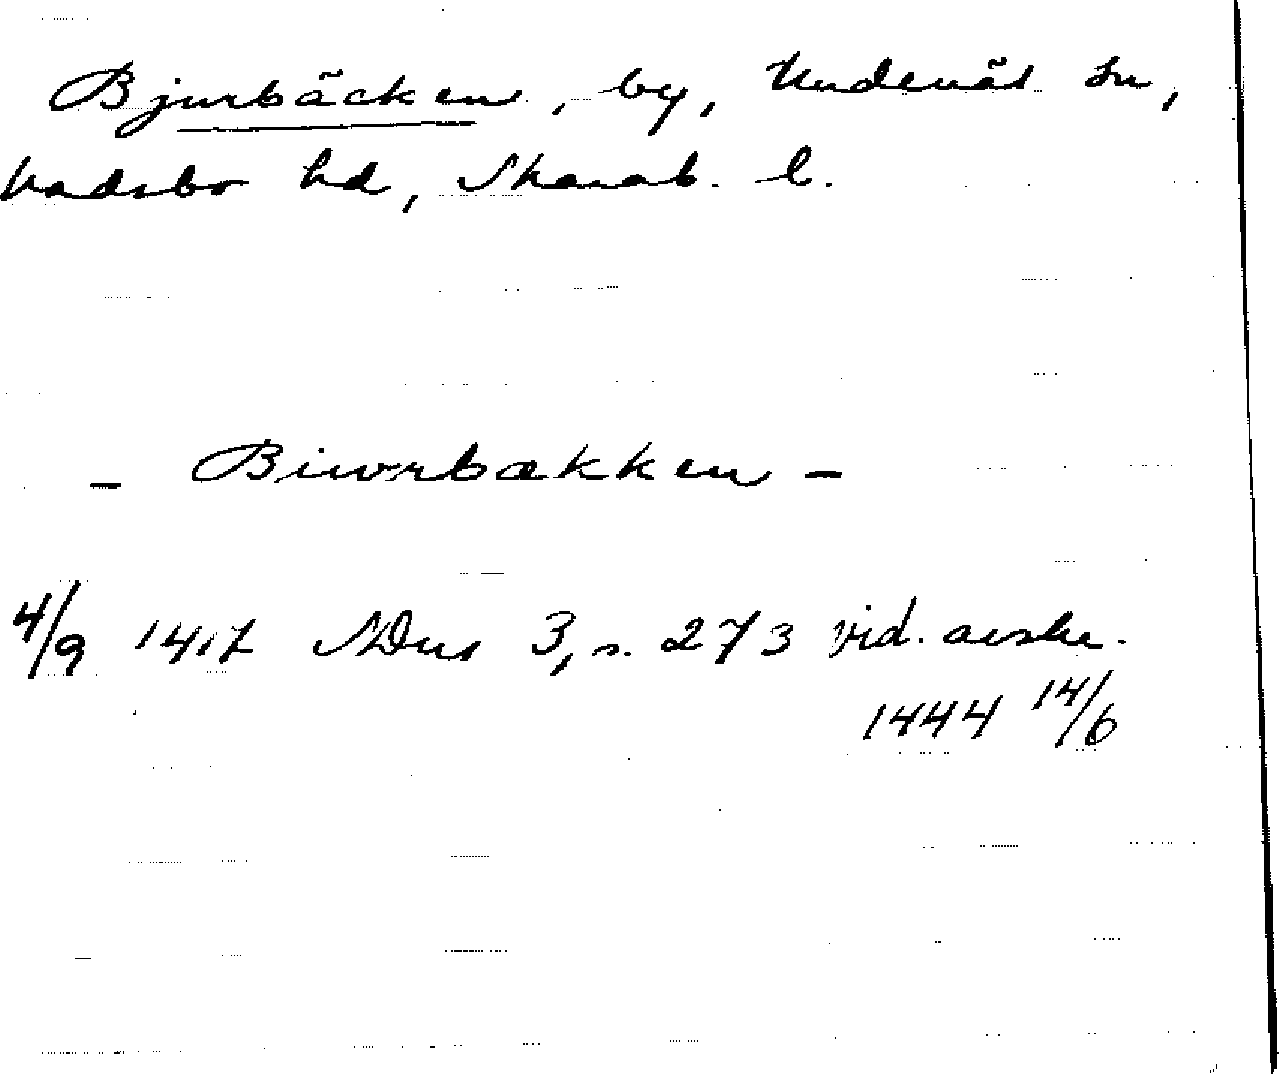 Bjurbäcken, by, Undenäs sn,
Vadsbo hd, Skarab. l.
- Biworbækken -
4/9 1417 SDns 3, s. 273 vid. avskr.
1444 14/6